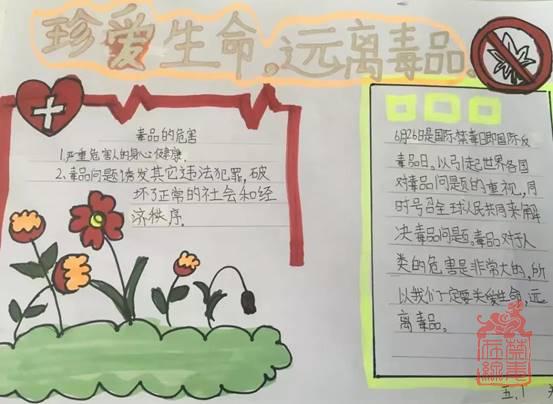 珍爱生命，远离毒品。
毒品的危害
1.严重危害人的身心健康。
2、毒品问题诱发其它违法犯罪，破
坏了正常的社会和经
济秩序。
6月26日是国际禁毒日即国际反
毒品日，以引起世界各国
对毒品问题的重视，同
时号召全球人民共同来解
决毒品问题。毒品对于人
类的危害是非常大的，所
以我们一定要关爱生命，远
离毒品。
五.1